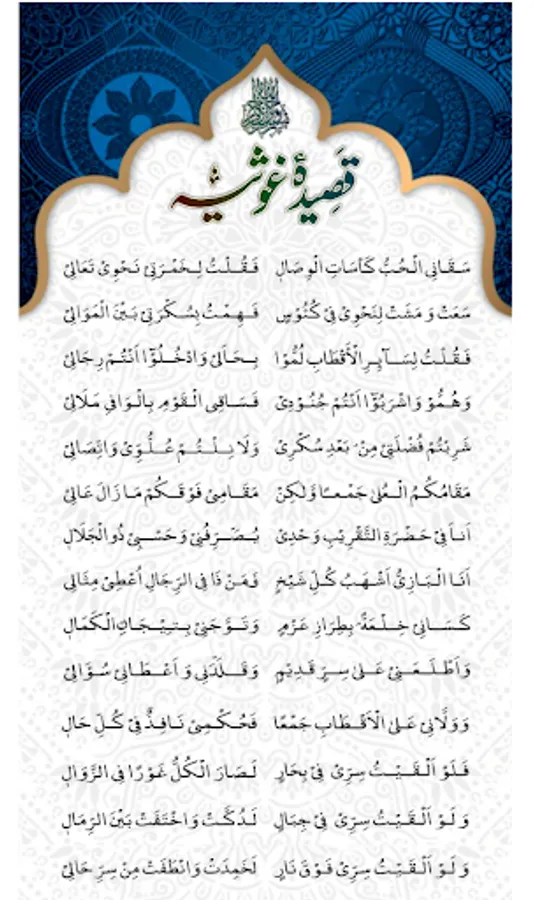 قصیدۂ غوثیہ
سَقَانِی الْحُبُّ كَأْسَاتِ الْوِصَالِ فَقُلْتُ لِخَمْرَتِیْ نَحْوِیْ تَعَالِیْ
سَعَتْ وَ مَشَتْ لِنَحْوِیْ فِیْ كُئُوْسٍ فَهِمْتُ بِسُكْرَتِیْ بَيْنَ الْمَوَالِیْ
فَقُلْتُ لِسَآئِرِ الْأَقْطَابِ لُمُّوْا بِحَالِیْ وَادْخُلُوْٓا اَنْتُمْ رِجَالِیْ
وَهُمُّوْ وَاشْرَبُوْٓا اَنْتُمْ جُنُوْدِیْ فَسَاقِی الْقَوْمِ بِالْوَافِیْ مَلَالِیْ
شَرِبْتُمْ فُضْلَتِیْ مِنْ بَعْدِ سُكْرِیْ وَلَا نِلْتُمْ عُلُوِّیْ وَاتِّصَالِیْ
مَقَامُكُمُ الْعُلٰی جَمْعًا وَّلٰكِنْ مَقَامِیْ فَوْقَكُمْ مَا زَالَ عَالِیْ
اَنَا فِیْ حَضْرَةِ التَّقْرِيْبِ وَحْدِیْ يُصَرِّفُنِیْ وَحَسْبِیْ ذُو الْجَلَالِ
اَنَا الْبَازِیُّ اَشْهَبُ كُلِّ شَيْخٍ وَمَنْ ذَا فِی الرِّجَالِ اُعْطِیَ مِثَالِیْ
كَسَانِیْ خِلْعَةً بِطِرَازِ عَزْمٍ وَتَوَّجَنِیْ بِتِيْجَانِ الْكَمَالِ
وَاَطْلَعَنِیْ عَلٰی سِرٍّ قَدِيْمٍ وَقَلَّدَنِیْ وَ اَعْطَانِیْ سُؤَالِیْ
وَوَلَّانِیْ عَلَی الْاَقْطَابِ جَمْعًا فَحُكْمِیْ نَافِذٌ فِیْ كُلِّ حَالٍ
فَلَوْ اَلْقَيْتُ سِرِّیْ فِیْ بِحَارٍ لَصَارَ الْكُلُّ غَوْرًا فِی الزَّوَالِ
وَ لَوْ اَلْقَيْتُ سِرِّیْ فِیْ جِبَالٍ لَدُكَّتْ وَاخْتَفَتْ بَيْنَ الرِّمَالِ
وَ لَوْ اَلْقَيْتُ سِرِّیْ فَوْقَ نَارٍ لَخَمِدَتْ وَانْطَفَتْ مِنْ سِرِّ حَالِیْ